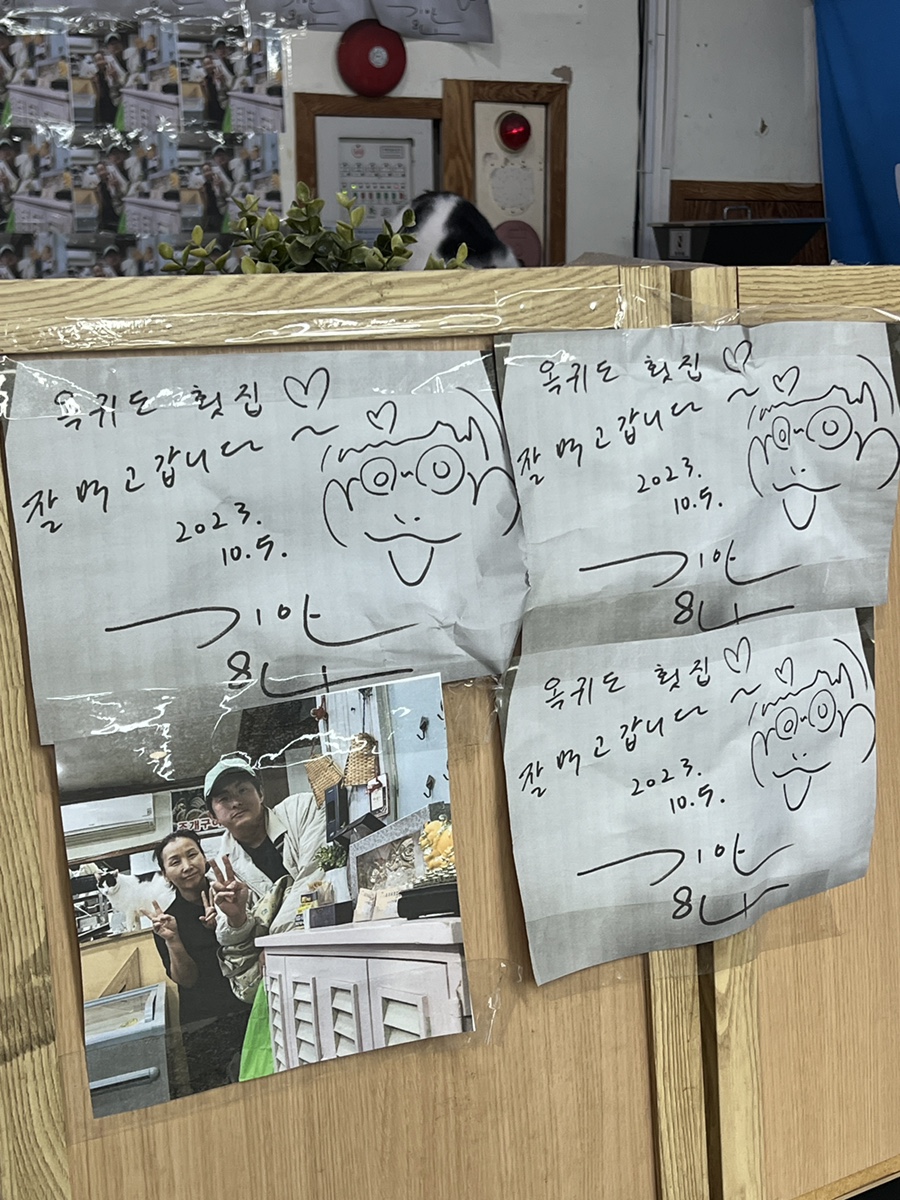 옥귀도 횟집 ♡
잘 먹고 갑니다 ~
2023.
10.5.
기안
84
옥귀도 횟집 ♡
잘 먹고 갑니다 ~
2023.
10.5.
기안
84
옥귀도 횟집 ♡
잘 먹고 갑니다 ~
2023.
10.5.
기안
84
조개구이